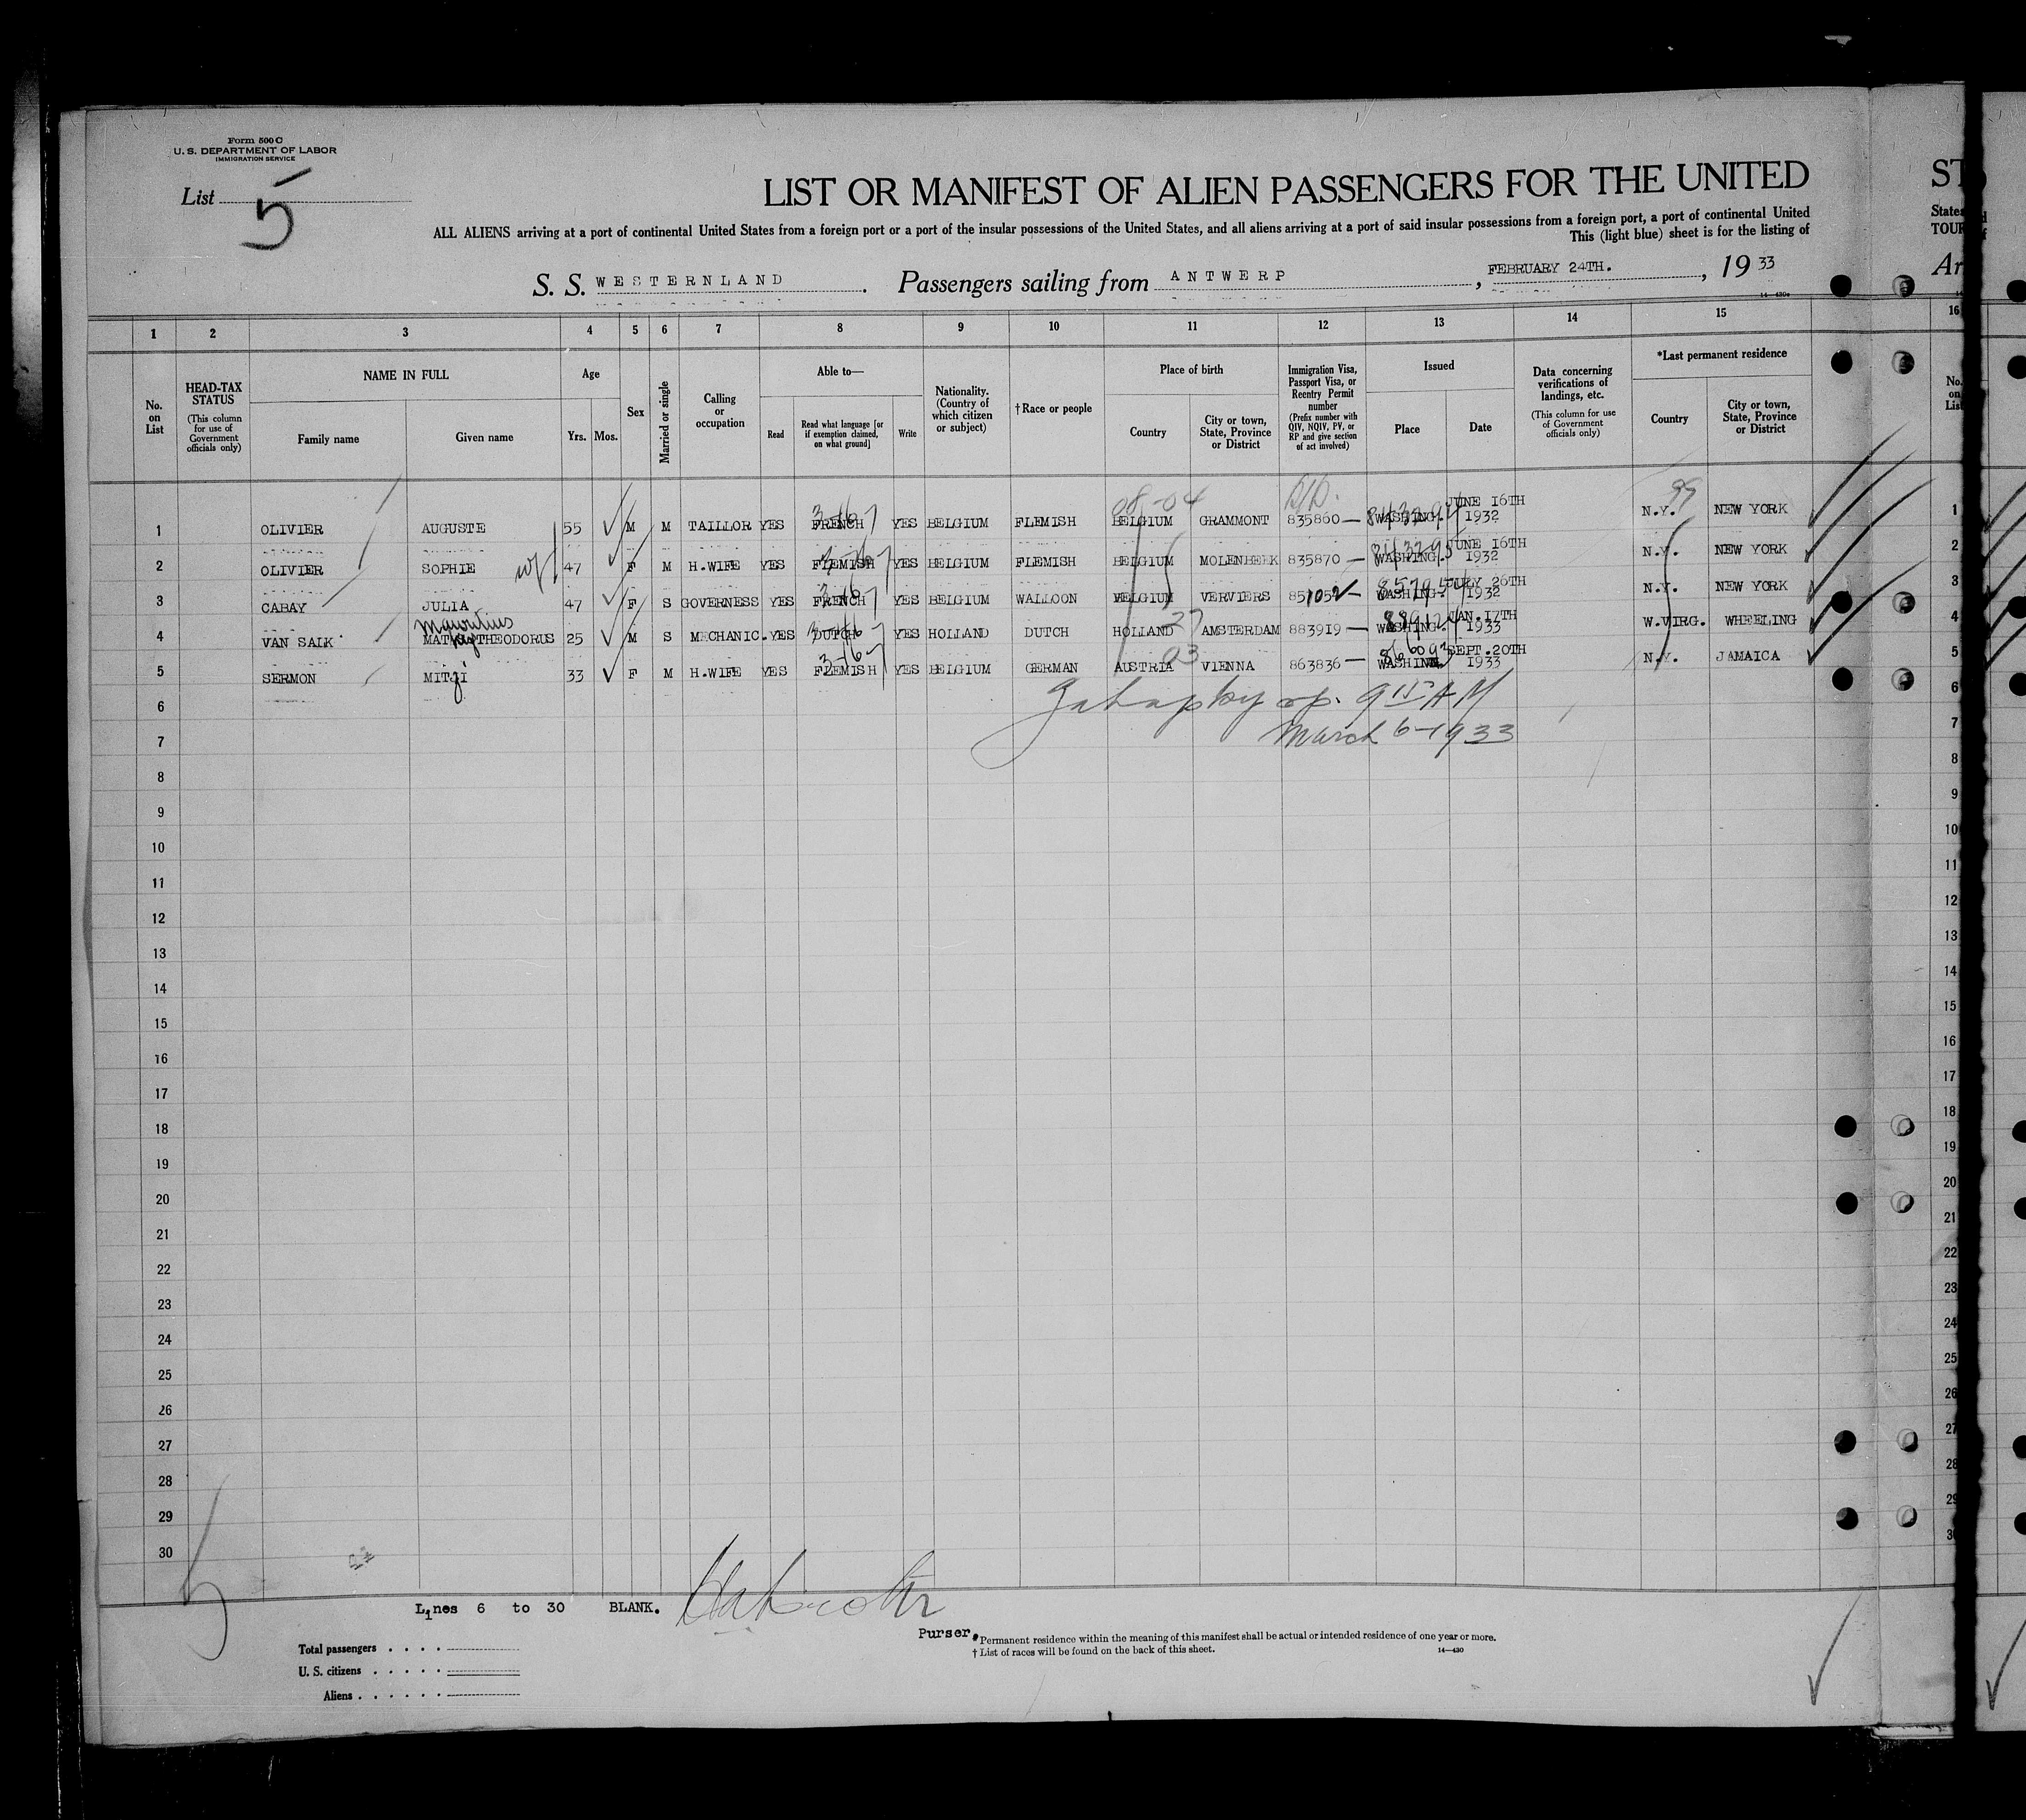 Form 500 C
U. S. DEPARTMENT OF LABOR
IMMIGRATION SERVICE
List 5
LIST OR MANIFEST OF ALIEN PASSENGERS FOR THE UNITED
ALL ALIENS arriving at a port of continental United States from a foreign port or a port of the insular possessions of the United States, and all aliens arriving at a port of said insular possessions from a foreign port, a port of continental United
This (light blue) sheet is for the listing of
S. S. WESTERNLAND. Passengers sailing from ANTWERP, FEBRUARY 24TH., 19 33
1 2 3 4 5 6 7 8 9 10 11 12 13 14 15
No. on List
HEAD-TAX STATUS
(This column for use of Government officials only)
NAME IN FULL
Family name
Given name
Age
Yrs. Mos.
Sex
Married or single
Calling or occupation
Able to—
Read
Read what language [or if exemption claimed, on what ground]
Write
Nationality. (Country of which citizen or subject)
†Race or people
Place of birth
Country
City or town, State, Province or District
Immigration Visa, Passport Visa, or Reentry Permit number
(Prefix number with QIV, NQIV, PV, or RP and give section of act involved)
Issued
Place
Date
Data concerning verifications of landings, etc.
(This column for use of Government officials only)
*Last permanent residence
Country
City or town, State, Province or District
08-04
99
1 OLIVIER AUGUSTE 55 M M TAILLOR YES FRENCH YES BELGIUM FLEMISH BELGIUM GRAMMONT 835860 WASHING. JUNE 16TH 1932 N.Y. NEW YORK 1
2 OLIVIER SOPHIE 47 F M H.WIFE YES FLEMISH YES BELGIUM FLEMISH BELGIUM MOLENBEEK 835870 WASHING. JUNE 16TH 1932 N.Y. NEW YORK 2
3 CABAY JULIA 47 F S GOVERNESS YES FRENCH YES BELGIUM WALLOON BELGIUM VERVIERS WASHING. JULY 26TH 1932 N.Y. NEW YORK 3
4 VAN SAIK THEODORUS 25 M S MECHANIC. YES DUTCH YES HOLLAND DUTCH HOLLAND 27 AMSTERDAM 883919 WASHING. JAN. 17TH 1933 W.VIRG. WHEELING 4
5 SERMON MITZI 33 F M H.WIFE YES FLEMISH YES BELGIUM GERMAN AUSTRIA 03 VIENNA 863836 SEPT. 20TH 1933 N.Y. JAMAICA 5
6
March 6-1933
7
8
9
10
11
12
13
14
15
16
17
18
19
20
21
22
23
24
25
26
27
28
29
30
Lines 6 to 30 BLANK.
Purser.
Total passengers
U. S. citizens
Aliens
* Permanent residence within the meaning of this manifest shall be actual or intended residence of one year or more.
† List of races will be found on the back of this sheet.
14—430